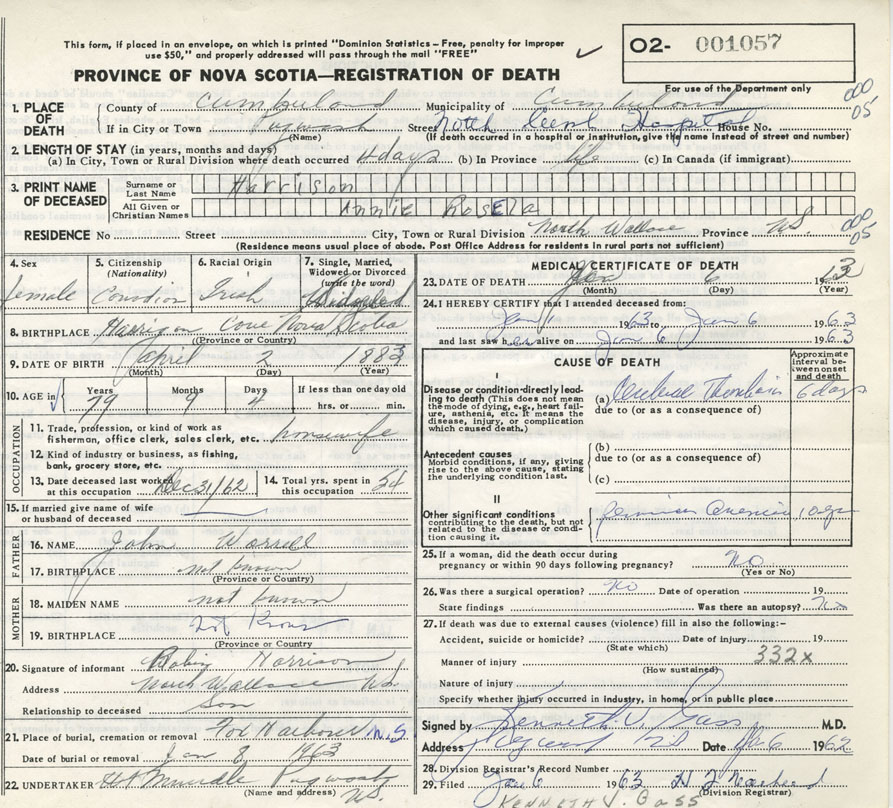 This form, if placed in an envelope, on which is printed "Dominion Statistics – Free, penalty for improper
use $50," and properly addressed will pass through the mail "FREE"
✓
O2- 001057
For use of the Department only
PROVINCE OF NOVA SCOTIA—REGISTRATION OF DEATH
000
05
1. PLACE OF DEATH
County of Cumberland Municipality of Cumberland
If in City or Town Pugwash Street North Hospital House No.
(Name) (If death occurred in a hospital or institution, give the name instead of street and number)
2. LENGTH OF STAY (in years, months and days)
(a) In City, Town or Rural Division where death occurred 4 days (b) In Province life (c) In Canada (if immigrant)
3. PRINT NAME OF DECEASED
Surname or Last Name Harrison
All Given or Christian Names Annie Rosela
RESIDENCE No Street City, Town or Rural Division North Wallace Province N.S. 000 05
(Residence means usual place of abode. Post Office Address for residents in rural parts not sufficient)
4. Sex female
5. Citizenship (Nationality) Canadian
6. Racial Origin Irish
7. Single, Married, Widowed or Divorced (write the word) Widowed
8. BIRTHPLACE Harrison Cove Nova Scotia
(Province or Country)
9. DATE OF BIRTH April 2 1883
(Month) (Day) (Year)
10. AGE in Years 79 Months 9 Days 4 If less than one day old
hrs. or min.
OCCUPATION
11. Trade, profession, or kind of work as
fisherman, office clerk, sales clerk, etc. housewife
12. Kind of industry or business, as fishing,
bank, grocery store, etc.
13. Date deceased last worked at this occupation Dec 31/62
14. Total yrs. spent in this occupation 54
15. If married give name of wife
or husband of deceased
FATHER
16. NAME John Worrell
17. BIRTHPLACE not known
(Province or Country)
MOTHER
18. MAIDEN NAME not known
19. BIRTHPLACE Not Known
(Province or Country)
20. Signature of informant Harrison
Address North Wallace N.S.
Relationship to deceased Son
21. Place of burial, cremation or removal Fox Harbour N.S
Date of burial or removal Jan 8 1963
22. UNDERTAKER Pugwash
(Name and address) N.S.
MEDICAL CERTIFICATE OF DEATH
23. DATE OF DEATH Jan 6 1963
(Month) (Day) (Year)
24. I HEREBY CERTIFY that I attended deceased from:
Jan 1 1963 to Jan 6 1963
and last saw her alive on Jan 6 1963
CAUSE OF DEATH
Approximate interval between onset and death
I
Disease or condition directly leading to death (This does not mean the mode of dying, e.g., heart failure, asthenia, etc. It means the disease, injury, or complication which caused death.)
(a) Thrombosis 6 days
due to (or as a consequence of)
Antecedent causes
Morbid conditions, if any, giving rise to the above cause, stating the underlying condition last.
(b)
due to (or as a consequence of)
(c)
II
Other significant conditions contributing to the death, but not related to the disease or condition causing it.
10 yr
25. If a woman, did the death occur during
pregnancy or within 90 days following pregnancy? No
(Yes or No)
26. Was there a surgical operation? No Date of operation 19
State findings Was there an autopsy? No
27. If death was due to external causes (violence) fill in also the following:–
Accident, suicide or homicide? Date of injury 19
(State which)
332x
Manner of injury
(How sustained)
Nature of injury
Specify whether injury occurred in industry, in home, or in public place
Signed by Kenneth V. Gass M.D.
Address Pugwash N.S. Date Jan 6 1962
28. Division Registrar's Record Number
29. Filed Jan 6 1963
(Division Registrar)
KENNETH V. GASS